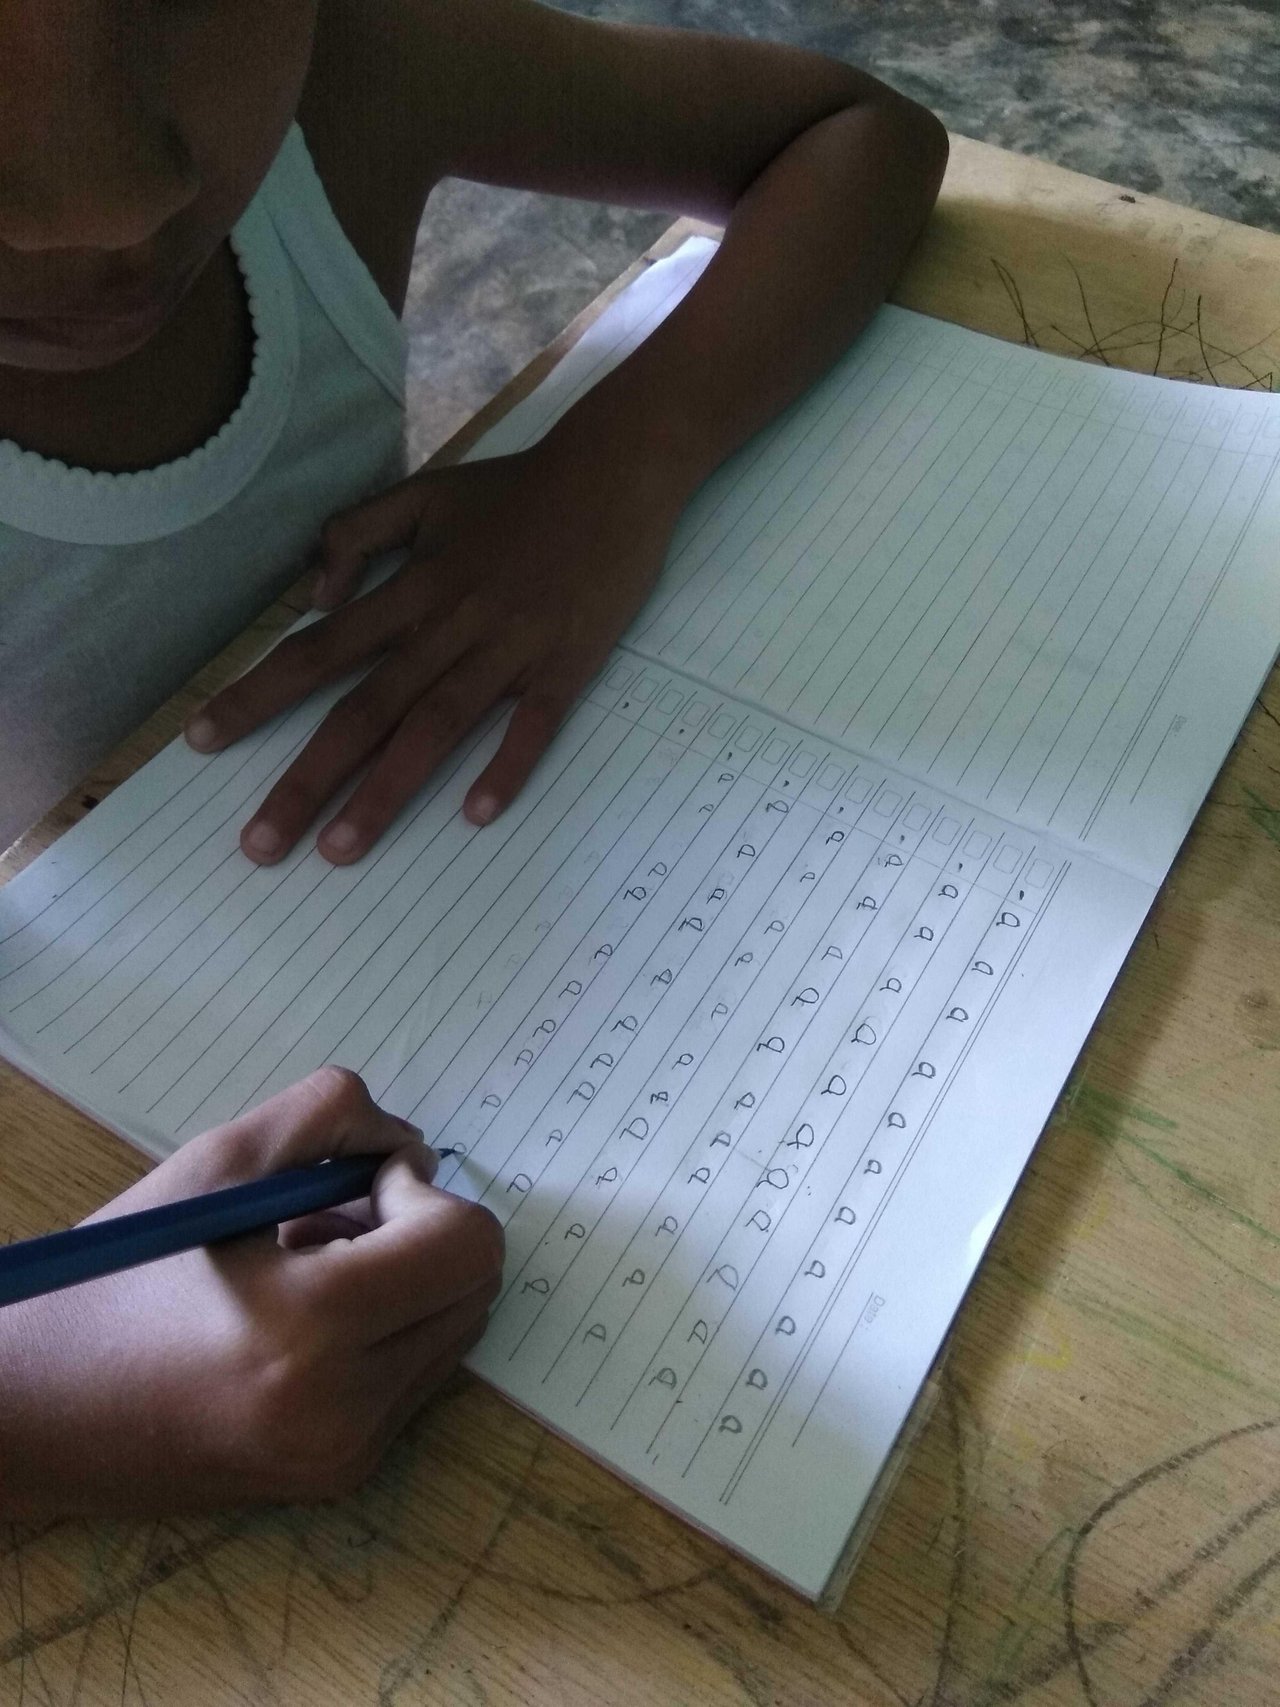 Date:
a a a a a a a a a a a
a a a a a a a a a a a
a a a a a a a a a a a
a a a a a a a a a a a
a a a a a a a a a a
a a a a a a a a a a
Date: